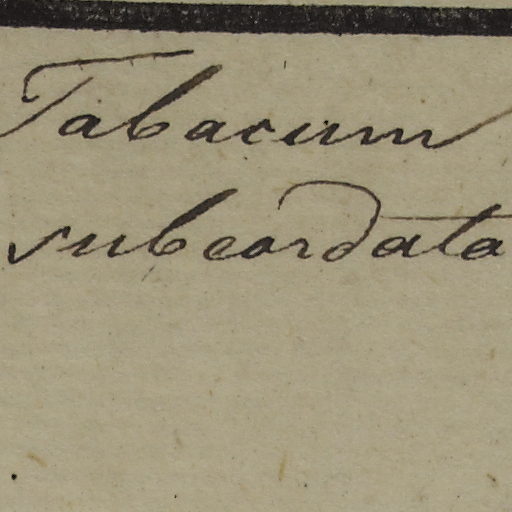 Tabacum
subcordata